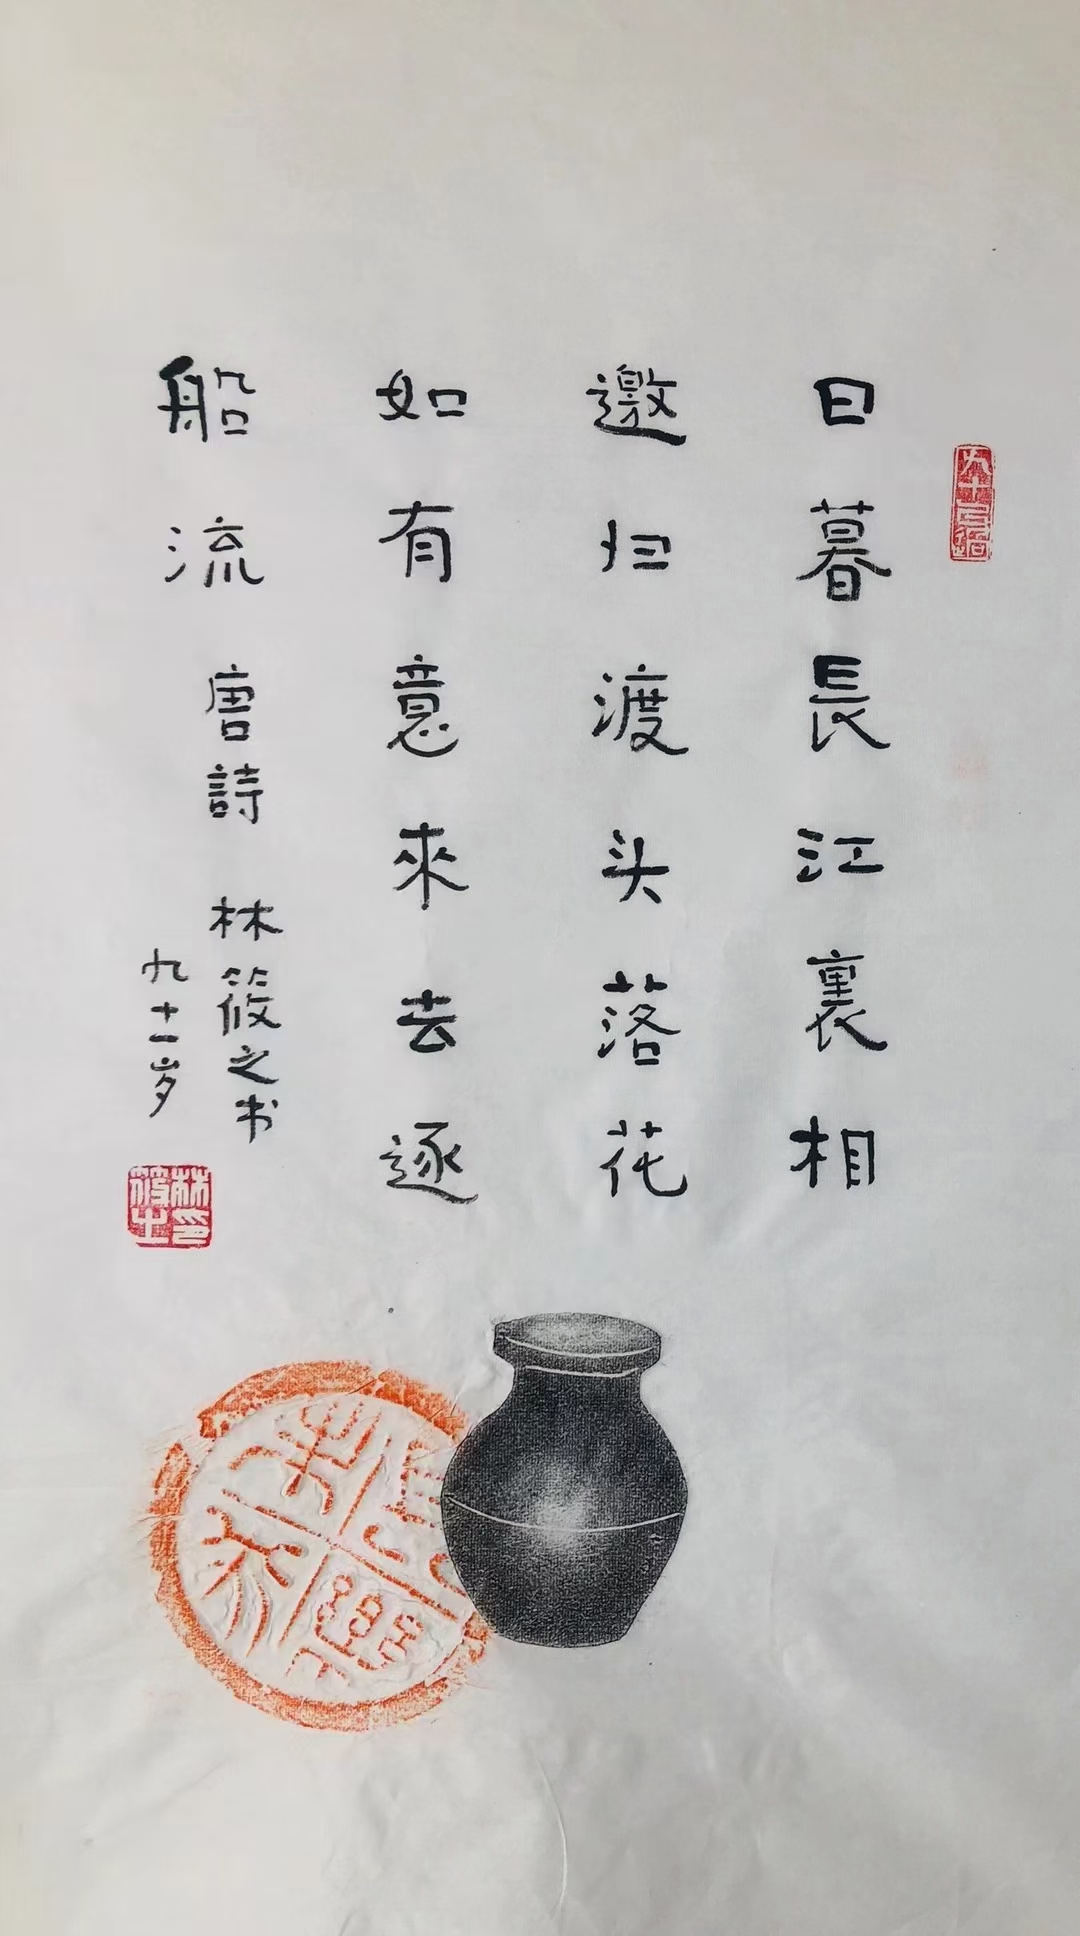 日暮長江裏相
邀归渡头落花
如有意來去逐
船流
唐詩 林筱之书
九十一岁
林筱之印